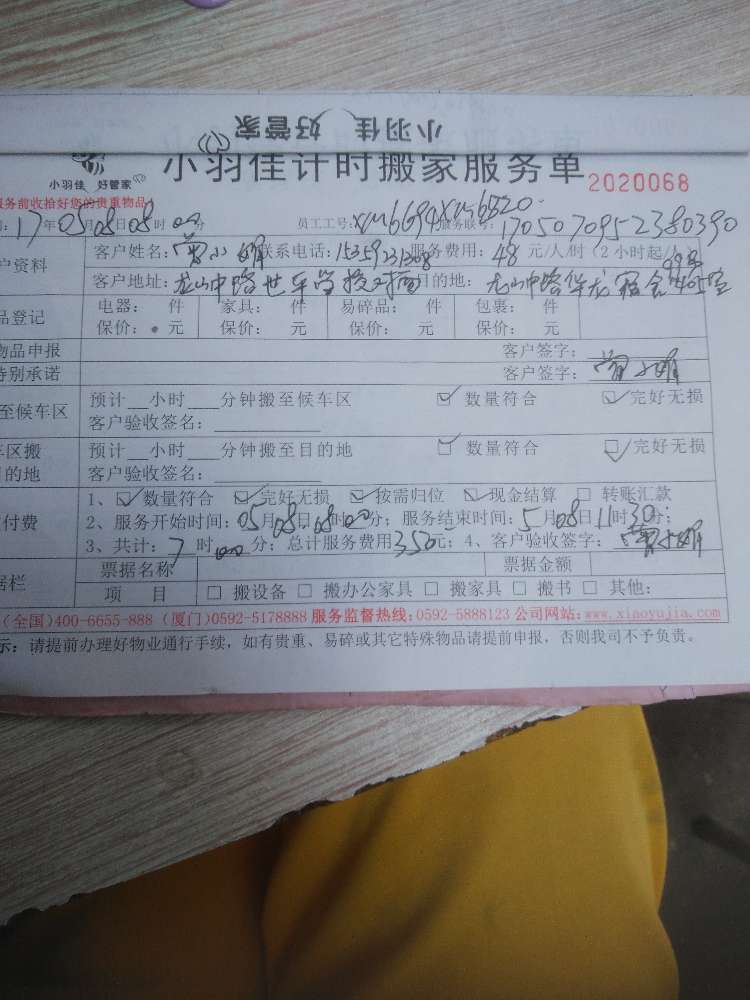 小羽佳 好管家
小羽佳 好管家
小羽佳计时搬家服务单 2020068
服务前收拾好您的贵重物品
17年05月08日08时00分 员工工号:xm6694xm6520 服务联号:1705070952380390
户资料 客户姓名:曾小娟 联系电话: 服务费用:48元/人/时(2小时起/人)
客户地址:龙山中路 目的地:龙山中路华龙宿舍
品登记 电器: 件 家具: 件 易碎品: 件 包裹: 件
保价: 元 保价: 元 保价: 元 保价: 元
物品申报 客户签字:
特别承诺 客户签字:曾小娟
至候车区 预计__小时___分钟搬至候车区 ☑ 数量符合 ☑ 完好无损
客户验收签名:
车区搬 预计__小时___分钟搬至目的地 ☑ 数量符合 ☑ 完好无损
的地 客户验收签名:
付费 1、☑ 数量符合 ☑ 完好无损 ☑ 按需归位 ☑ 现金结算 □ 转账汇款
2、服务开始时间:05月08日08时00分; 服务结束时间:5月08日11时30分;
3、共计:7时00分; 总计服务费用350元; 4、客户验收签字:曾小娟
据栏 票据名称 票据金额
项 目 □ 搬设备 □ 搬办公家具 □ 搬家具 □ 搬书 □ 其他:
(全国)400-6655-888 (厦门)0592-5178888 服务监督热线:0592-5888123 公司网站:www.xiaoyujia.com
示:请提前办理好物业通行手续,如有贵重、易碎或其它特殊物品请提前申报,否则我司不予负责。